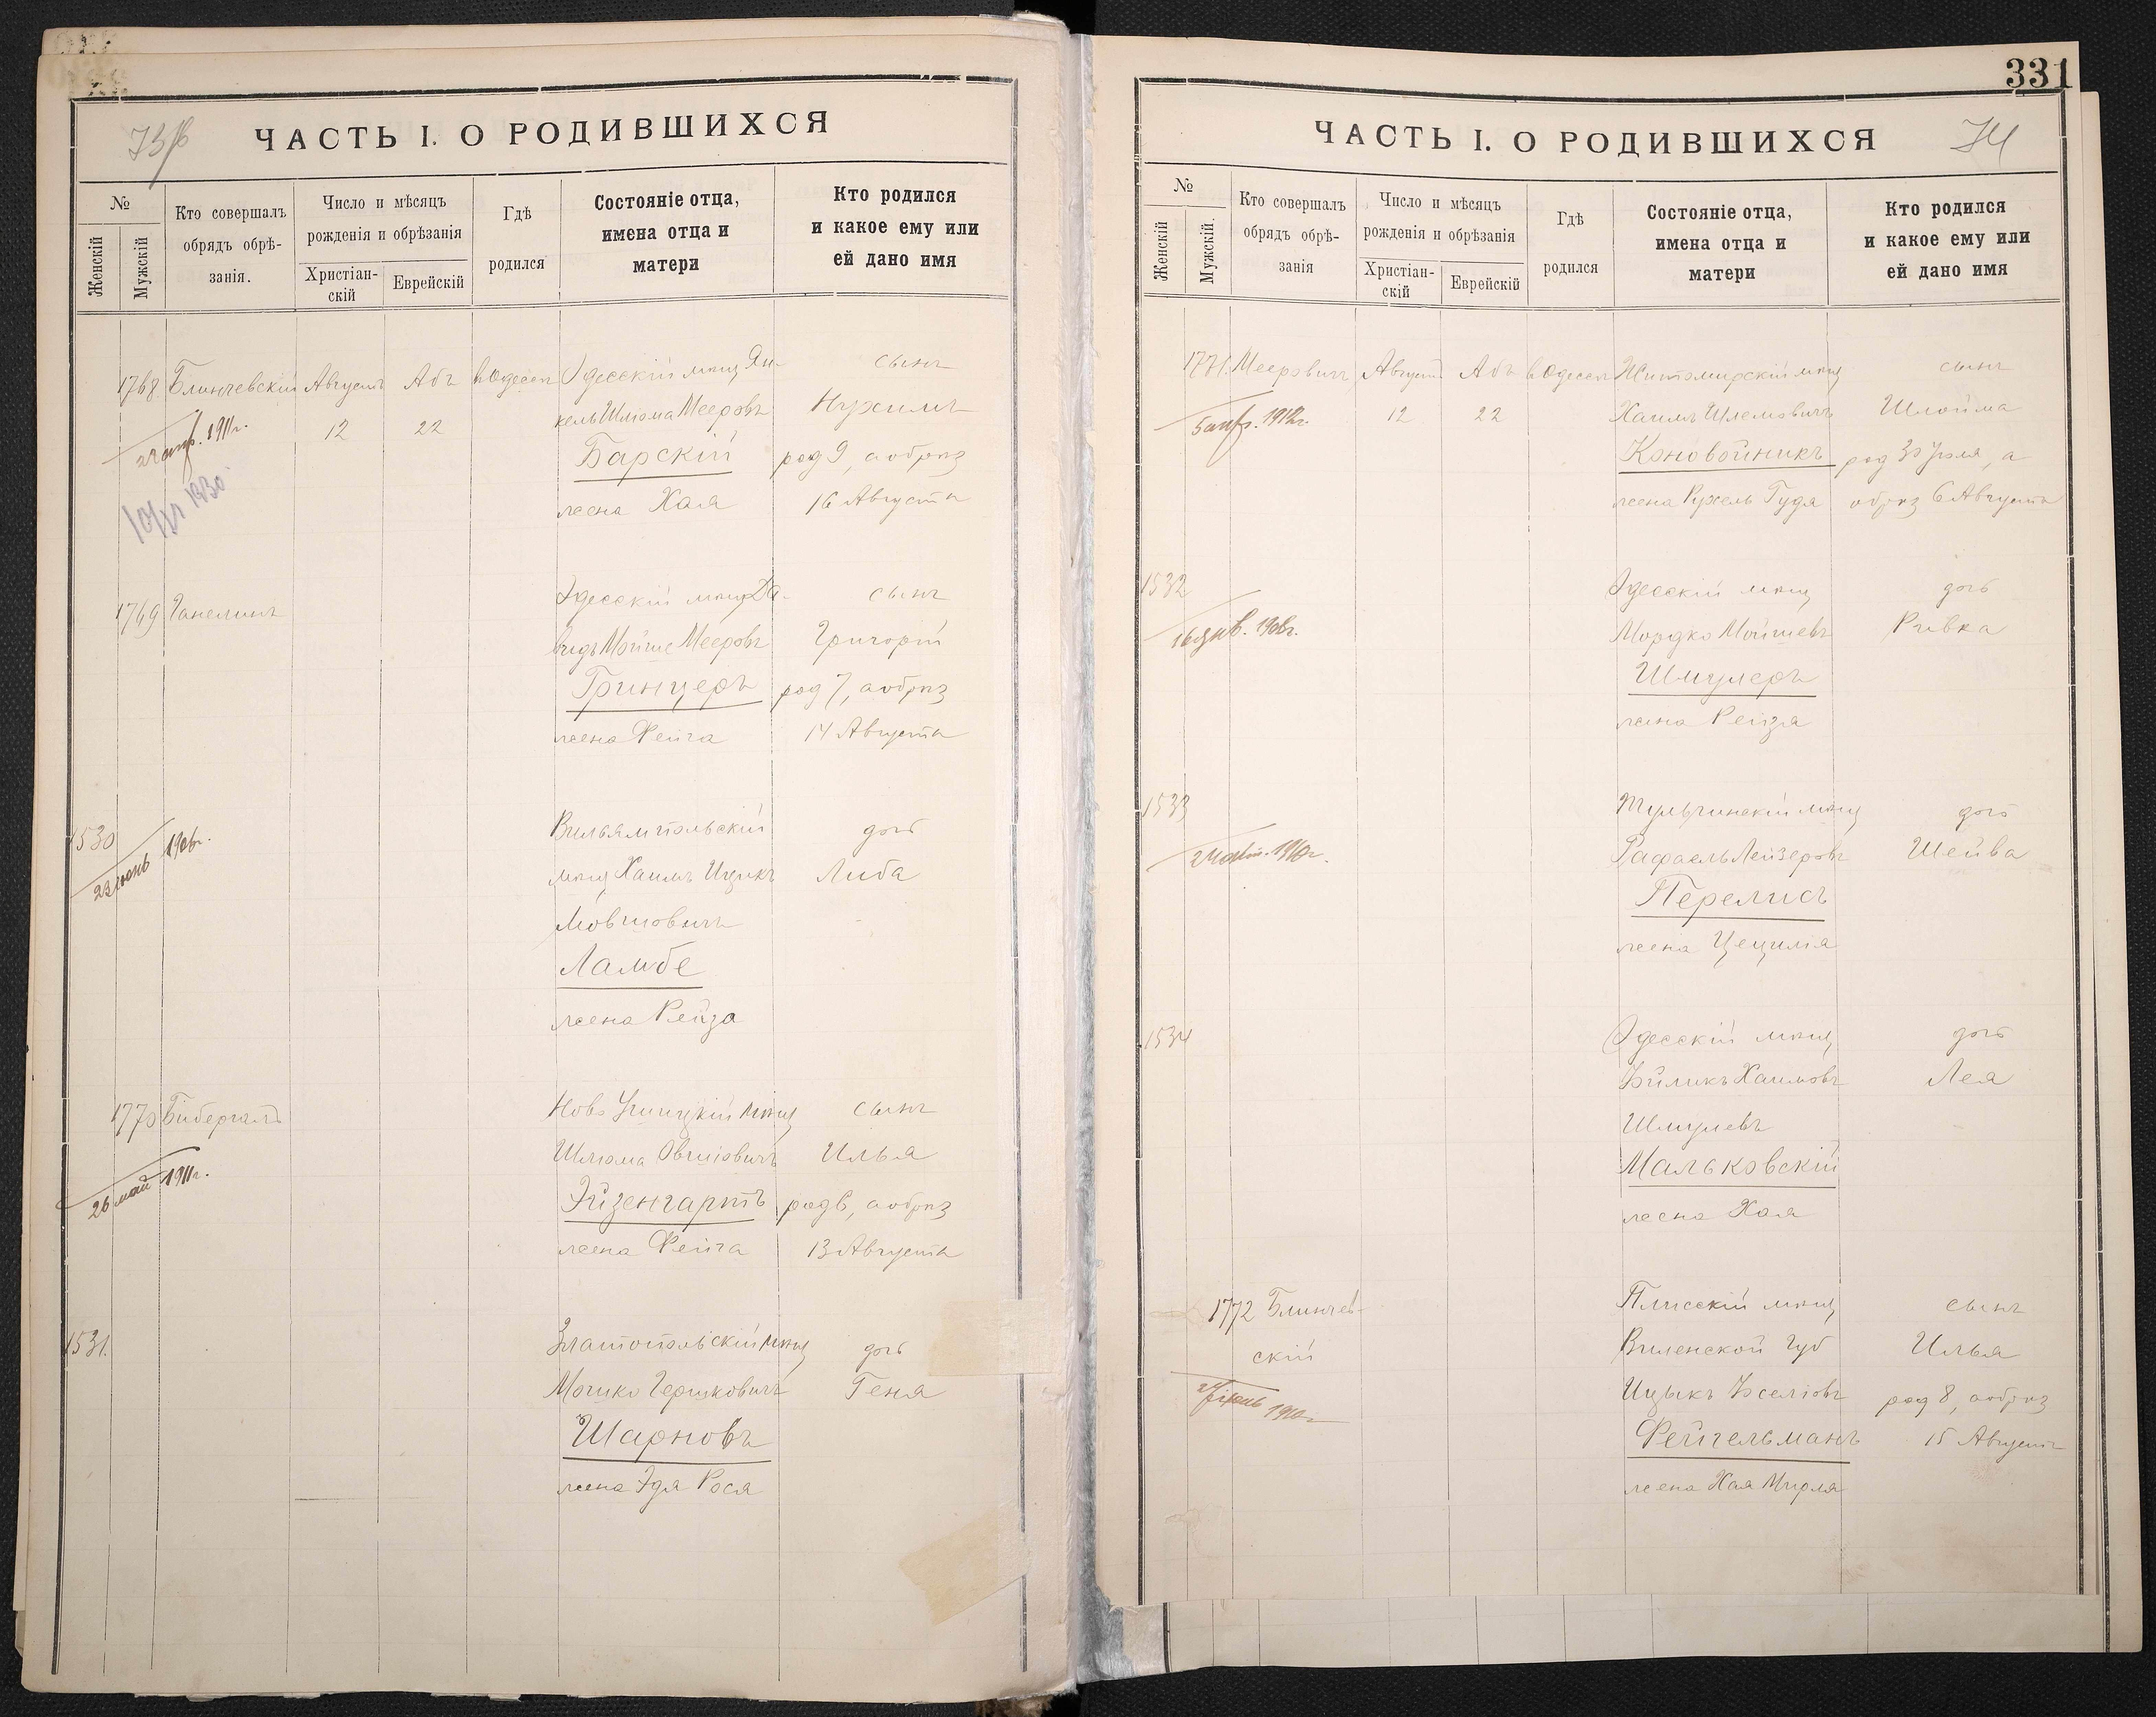 ЧАСТЬ I. О РОДИВШИХСЯ
№
Женскій
Мужскій
Кто совершалъ
обрядъ обрѣ-
занія.
Число и мѣсяцъ
рожденія и обрѣзанія
Христіан-
скій
Еврейскій
Гдѣ
родился
Состояніе отца,
имена отца и
матери
Кто родился
и какое ему или
ей дано имя
1768 Блинчевскій Августъ Абъ Одесскій мѣщ Ян- сынъ
12 22 кель Шлома Мееровъ Нухимъ
1911г.
Барскій род 9, а обрѣз
жена Хая 16 Августа
1930
1769 Ганелинъ Одесскій мѣщ Да- сынъ
видъ Мойше Мееровъ Григорій
Гринцеръ род 7, а обрѣз
жена Фейга 14 Августа
1530 Вильямпольскій дочь
мѣщ Хаимъ Ицикъ Либа
Мовшовичъ
Ламбе
жена Рейза
1770 Бибергалъ Ново Ушицкій мѣщ сынъ
Шлома Овшіовичъ Илья
26 май 1911г.
Эйзенгартъ род 6, а обрѣз
жена Фейга 13 Августа
1531. Златопольскій мѣщ дочь
Мошко Гершковичъ Геня
Шарновъ
жена Эдя Рося
331
ЧАСТЬ I. О РОДИВШИХСЯ
74
№
Женскій
Мужскій.
Кто совершалъ
обрядъ обрѣ-
занія
Число и мѣсяцъ
рожденія и обрѣзанія
Христіан-
скій
Еврейскій
Гдѣ
родился
Состояніе отца,
имена отца и
матери
Кто родился
и какое ему или
ей дано имя
1771. Мееровичъ Августъ Абъ Житомирскій мѣщ сынъ
12 22 Хаимъ Шлемовичъ Шлойма
1912г.
Коновойникъ род 30 Іюля, а
жена Рухель Гудя обрѣз 6 Августа
1532 Одесскій мѣщ дочь
Мордко Мойшевъ Ривка
Шмулеръ
жена Рейзя
1533 Тульчинскій мѣщ дочь
Рафаель Лейзеровъ Шейва
1910г.
Перелисъ
жена Цецилія
1534 Одесскій мѣщ дочь
Хаимовъ Лея
Шмулевъ
Мальковскій
жена Хая
1772 Блинчев- Плисскій мѣщ сынъ
скій Виленской Губ Илья
1910г
Ицыкъ род 8, а обрѣз
Фейгельманъ 15 Августа
жена Хая Мирля